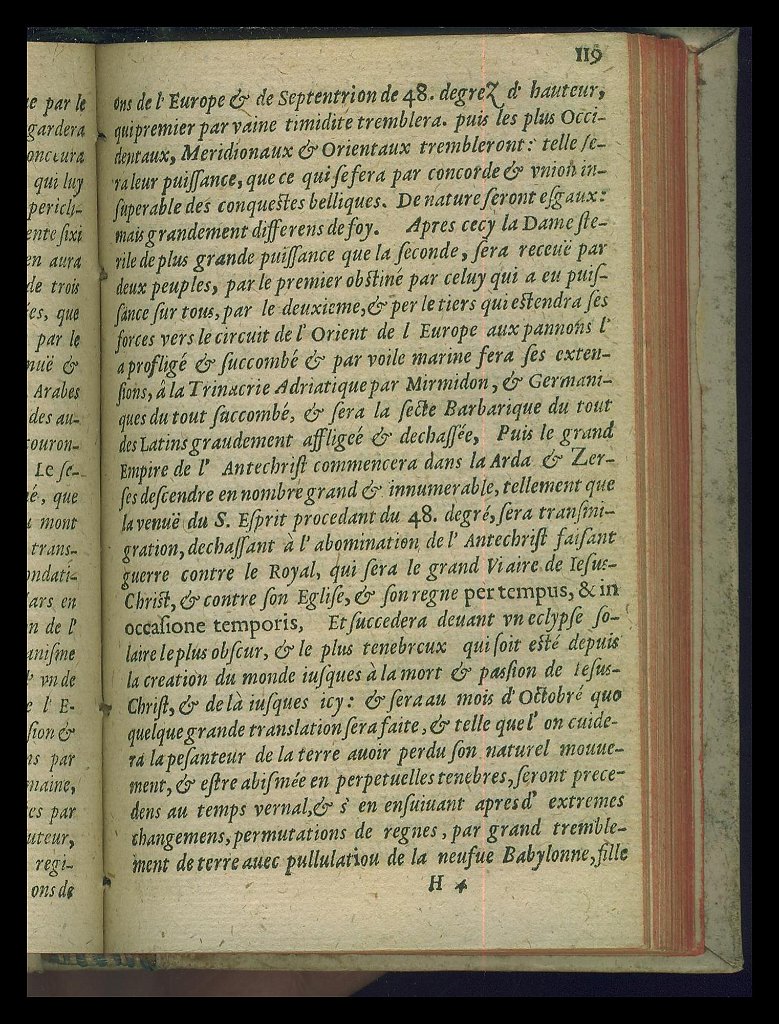 119
ons de l' Europe & de Septentrion de 48. degrez d' hauteur,
qui premier par vaine timidite tremblera. puis les plus Occi-
dentaux, Meridionaux & Orientaux trembleront: telle ſe-
ra leur puiſſance, que ce qui ſe fera par concorde & vnion in-
ſuperable des conqueſtes belliques. De nature ſeront eſgaux:
mais grandement differens de foy. Apres cecy la Dame ſte-
rile de plus grande puiſſance que la ſeconde, ſera receuë par
deux peuples, par le premier obſtiné par celuy qui a eu puiſ-
ſance ſur tous, par le deuxieme, & per le tiers qui eſtendra ſes
forces vers le circuit de l' Orient de l Europe aux pannons l'
a profligé & ſuccombé & par voile marine fera ſes exten-
ſions, à la Trinacrie Adriatique par Mirmidon, & Germani-
ques du tout ſuccombé, & ſera la ſecte Barbarique du tout
des Latins graudement affligeé & dechaſſée, Puis le grand
Empire de l' Antechriſt commencera dans la Arda & Zer-
ſes deſcendre en nombre grand & innumerable, tellement que
la venuë du S. Eſprit procedant du 48. degré, ſera tranſmi-
gration, dechaſſant à l' abomination de l' Antechriſt faiſant
guerre contre le Royal, qui ſera le grand Viaire de Ieſus-
Chriſt, & contre ſon Egliſe, & ſon regne per tempus, & in
occaſione temporis, Et ſuccedera deuant vn eclypſe ſo-
laire le plus obſcur, & le plus tenebreux qui ſoit eſté depuis
la creation du monde iuſques à la mort & paſſion de Ieſus-
Chriſt, & de là iuſques icy: & ſera au mois d' Octobré que
quelque grande tranſlation ſera faite, & telle que l' on cuide-
ra la peſanteur de la terre auoir perdu ſon naturel mouue-
ment, & eſtre abiſmée en perpetuelles tenebres, ſeront prece-
dens au temps vernal, & s' en enſuiuant apres d' extremes
changemens, permutations de regnes, par grand tremble-
ment de terre auec pullulatiou de la neufue Babylonne, fille
H 4
par le
gardera
qui luy
perich-
en aura
de trois
es, que
par le
nuë &
Arabes
des au-
couron-
Le ſe-
é, que
mont
trans-
ondati-
ars en
n de l'
aniſme
vn de
l' E-
ſion &
ns par
maine,
es par
uteur,
regi-
ons de